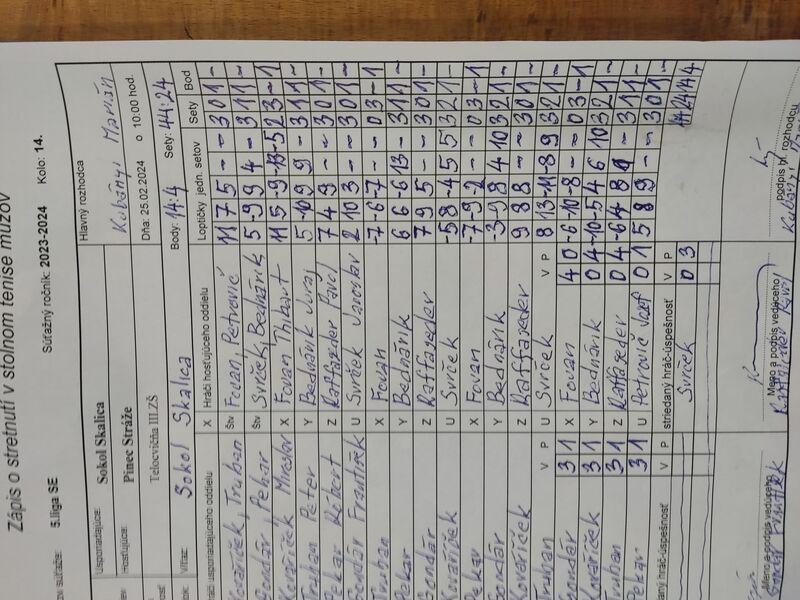 Zápis o stretnutí v stolnom tenise mužov
5.liga SE Súťažný ročník: 2023-2024 Kolo: 14.
Usporiadajúce: Sokol Skalica Hlavný rozhodca
Hosťujúce: Pinec Stráže
Telocvičňa III.ZŠ Dňa: 25.02.2024 o 10:00 hod.
Víťaz: Sokol Skalica Body: 14:4 Sety: 44:24
Hráči usporiadajúceho oddielu X Hráči hosťujúceho oddielu Loptičky jedn. setov Sety Bod
Kovaříček, Truhan Štv Fovan, Petrovič 11 7 5 - - 3 0 1 -
Gondár, Pekar Štv Svrček, Bednárik 5 -9 9 4 - 3 1 1 -
Kovaříček Miroslav X Fovan Thibart 11 5 -9 -13 -5 2 3 - 1
Truhan Peter Y Bednárik Juraj 5 -10 9 9 - 3 1 1 -
Pekar Róbert Z Raffageder Pavol 7 4 9 - - 3 0 1 -
Gondár František U Svrček Jaroslav 2 10 3 - - 3 0 1 -
Truhan X Fovan -7 -6 -7 - - 0 3 - 1
Pekar Y Bednárik 6 6 -6 13 - 3 1 1 -
Gondár Z Raffageder 7 9 5 - - 3 0 1 -
Kovaříček U Svrček -5 8 -4 5 5 3 2 1 -
Pekar X Fovan -7 -9 -2 - - 0 3 - 1
Gondár Y Bednárik -3 -9 8 4 10 3 2 1 -
Kovaříček Z Raffageder 9 8 8 - - 3 0 1 -
Truhan U Svrček 8 13 -11 -8 9 3 2 1 -
V P V P
Gondár 3 1 X Fovan 4 0 -6 -10 -8 - - 0 3 - 1
Kovaříček 3 1 Y Bednárik 0 4 -10 -5 4 6 10 3 2 1 -
Truhan 3 1 Z Raffageder 0 4 -6 4 8 - 3 1 1 -
Pekar 3 1 U Petrovič Jozef 0 1 5 8 9 - - 3 0 1 -
striedaný hráč-úspešnosť V P striedaný hráč-úspešnosť V P 44 24 14 4
Svrček 0 3
Meno a podpis vedúceho Meno a podpis vedúceho podpis hl. rozhodcu